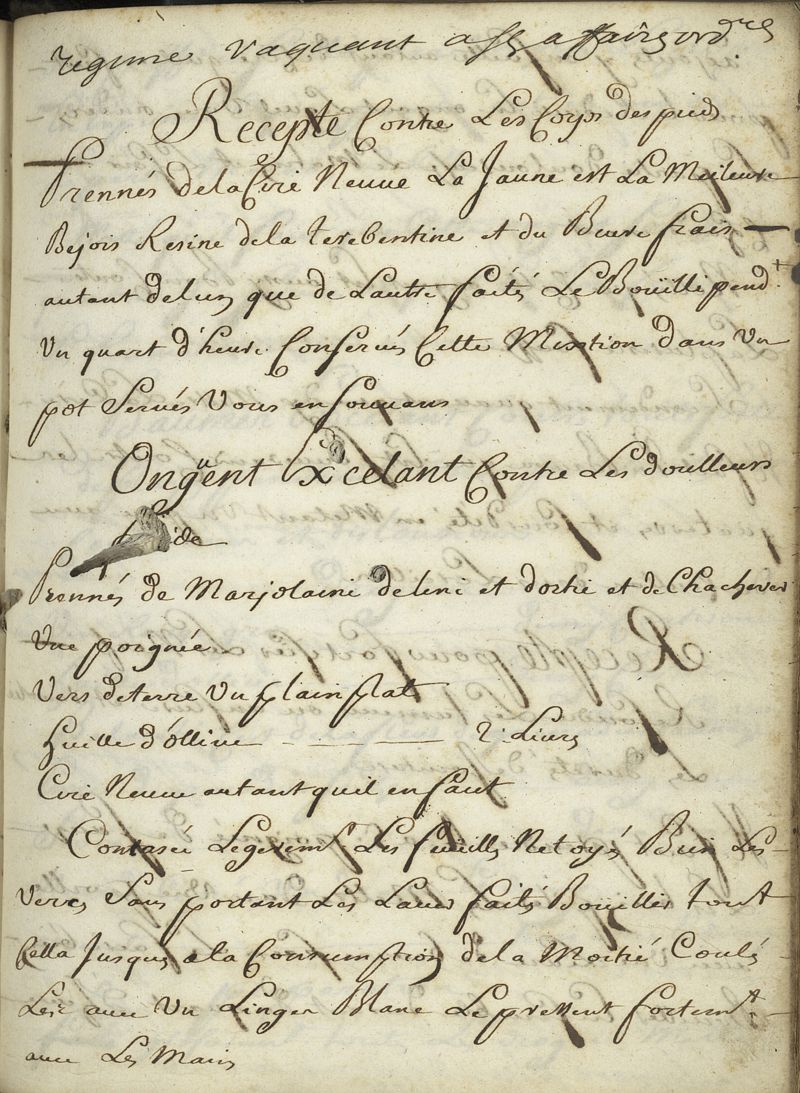 regime vaquant a ses affaires ord.res
Recepte Contre Les Cors des pieds
Prennés de la Cire Neuve La Jaune est La Meileure
Bejois Resine de la terebentine et du Beure frais
autant de lun que de Lautre faités Le Boüilli pend.t
Un quart d'heure Conservés Cette Mixtion dans Un
pot Servés Vous en souvans
Ongüent Excelant Contre Les douilleurs
froide
Prennés de Marjolaine de line et dortie et de
Une poignée
Vers de terre Un plain plat
Huille d'Ollive 2 Livres
Cire Neuve autant quil en faut
Contasée Legerem.t Les feuilles Netoyés Bien Les
Verres Sans portant Les Laver faités Bouillir tout
Cella Jusques a la Consumption de la Moitié Coulés
Les avec Un Linger Blanc Le pressent fortem.t
avec Les Mains